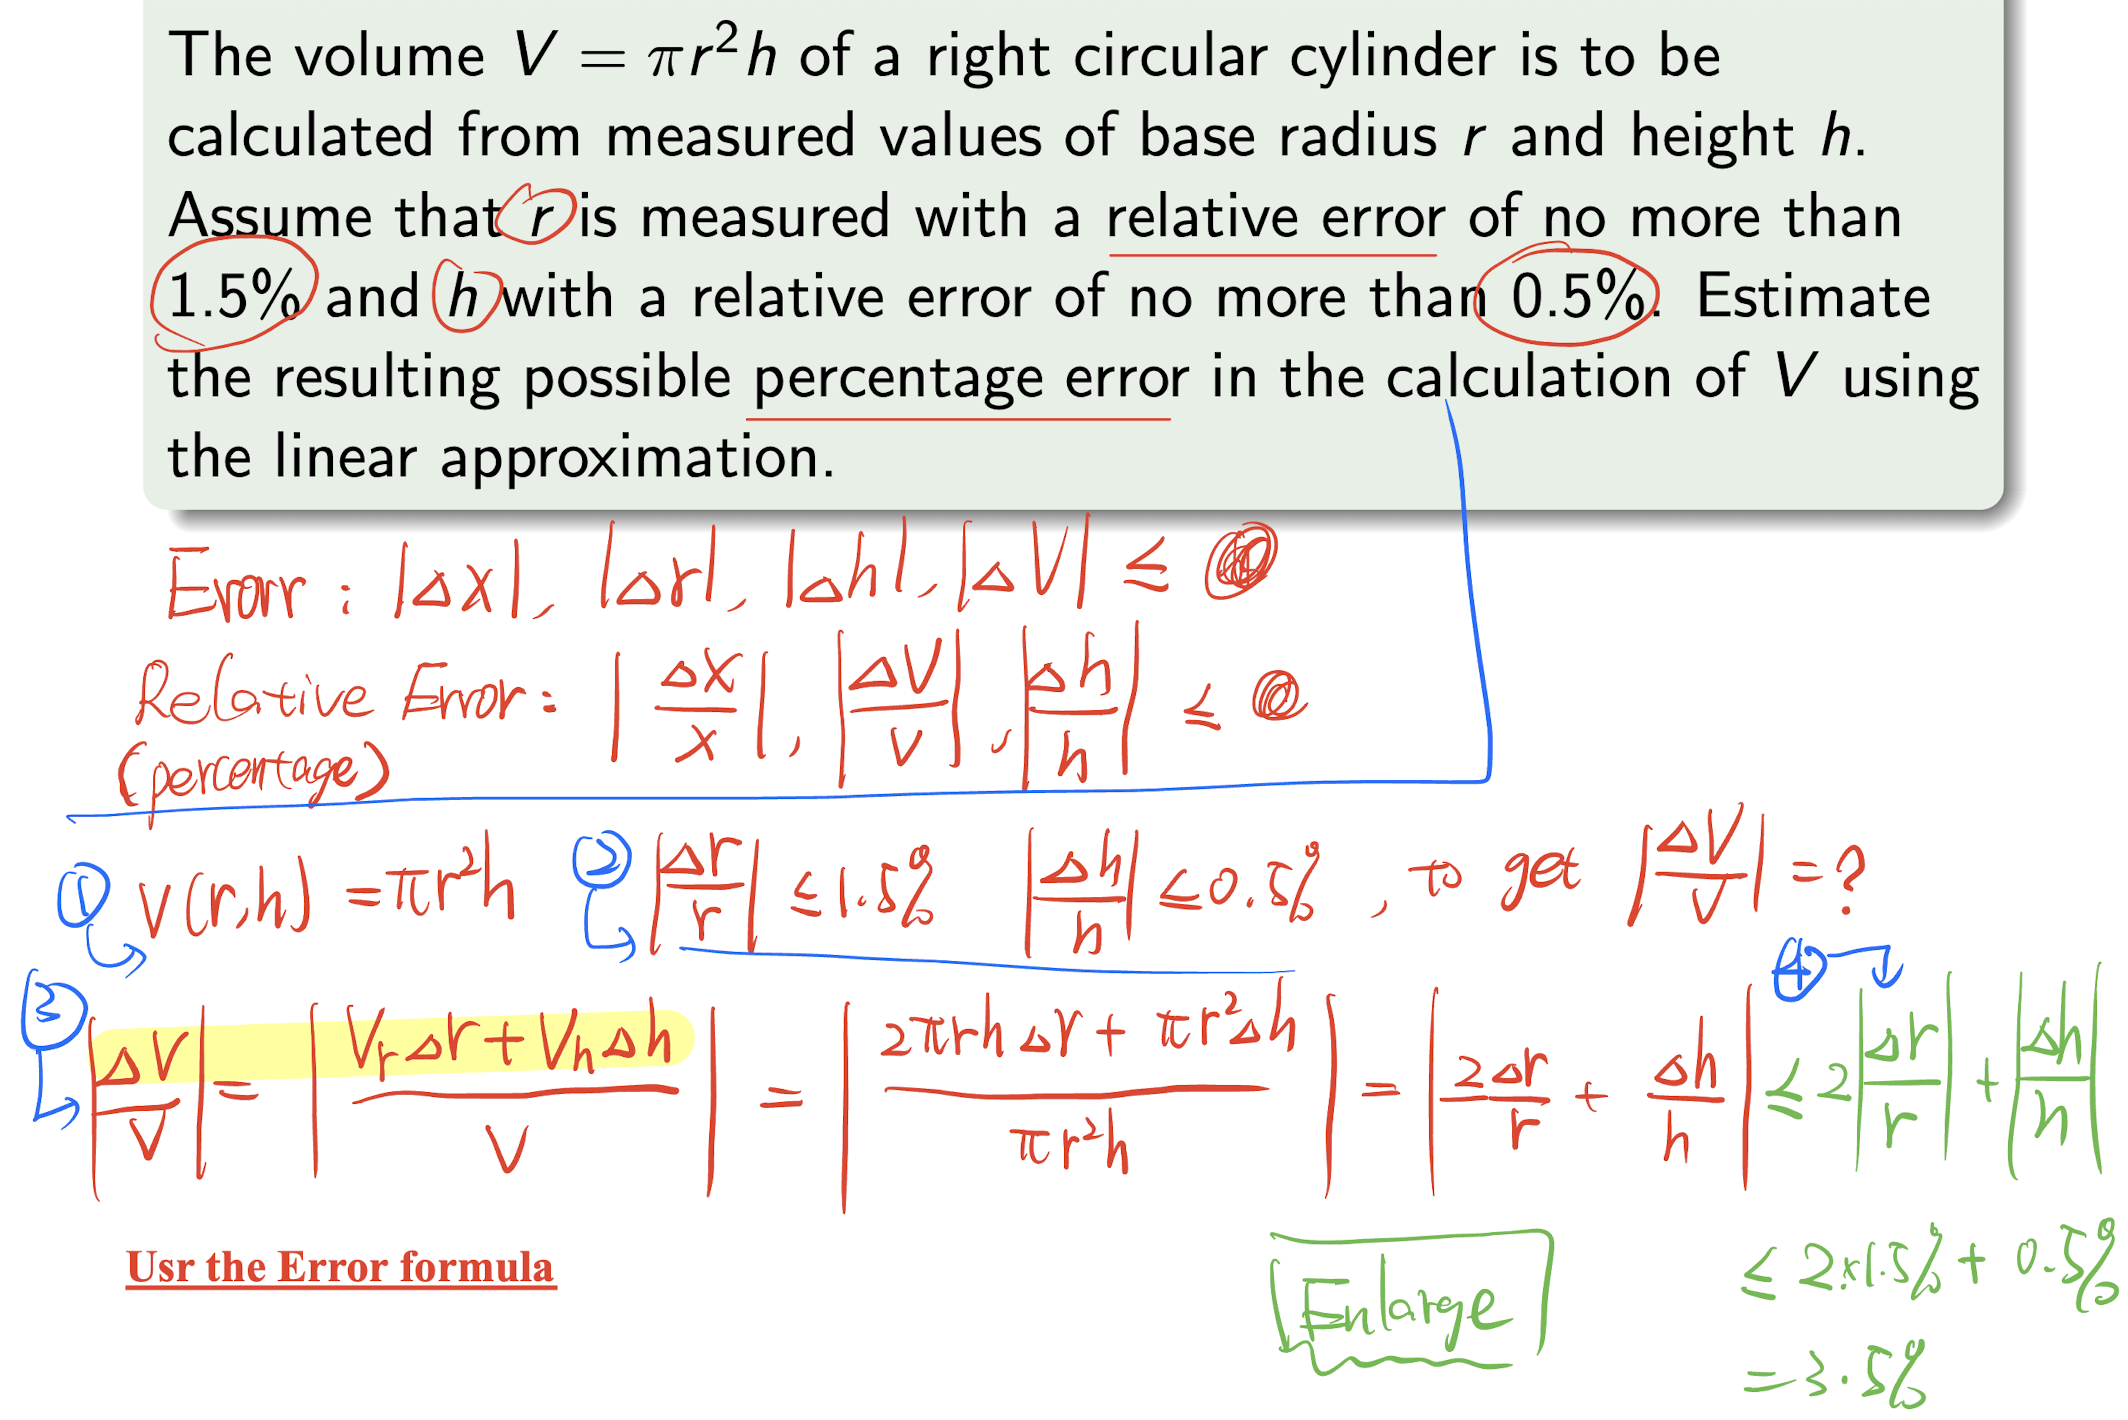 The volume V = πr²h of a right circular cylinder is to be
calculated from measured values of base radius r and height h.
Assume that r is measured with a relative error of no more than
1.5% and h with a relative error of no more than 0.5%. Estimate
the resulting possible percentage error in the calculation of V using
the linear approximation.
Erorr : |△x|, |△r|, |△h|, |△V| ≤
Relative Error: |△x/x|, |△V/V|, |△h/h| ≤
(percentage)
① V(r,h) = πr²h ② |△r/r| ≤ 1.5% |△h/h| ≤ 0.5%, to get |△V/V| = ?
③ |△V/V| = |(Vr△r + Vh△h)/V| = |(2πrh△r + πr²△h)/(πr²h)| = |2△r/r + △h/h| ④ ≤ 2|△r/r| + |△h/h|
Usr the Error formula
Enlarge
≤ 2×1.5% + 0.5%
= 3.5%